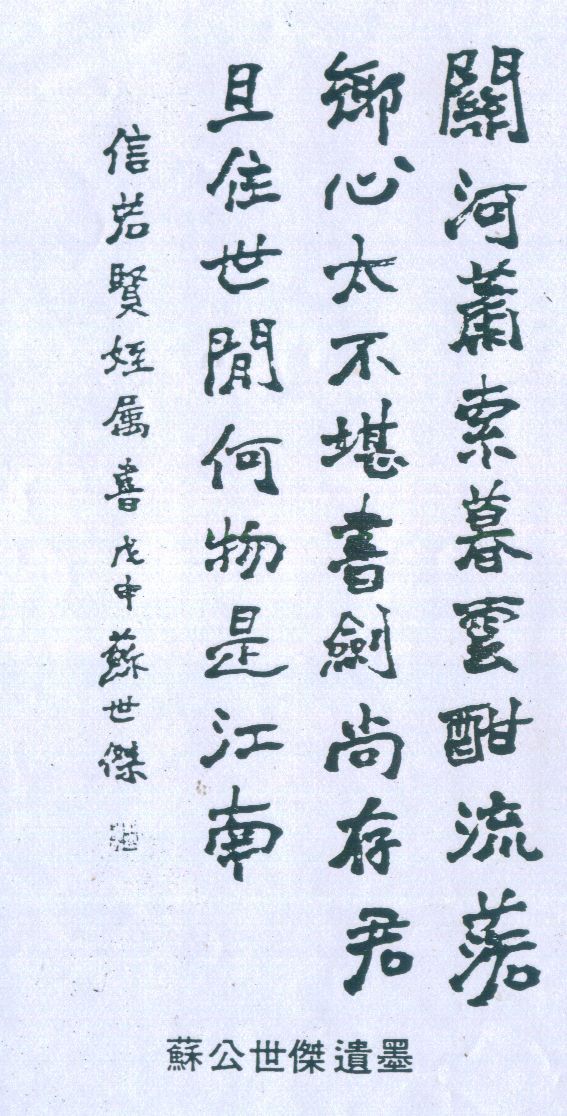 關河蕭索暮雲酣流落
鄉心太不堪書劍尚存君
且住世閒何物是江南
信若賢姪属書戊申蘇世傑
蘇公世傑遺墨